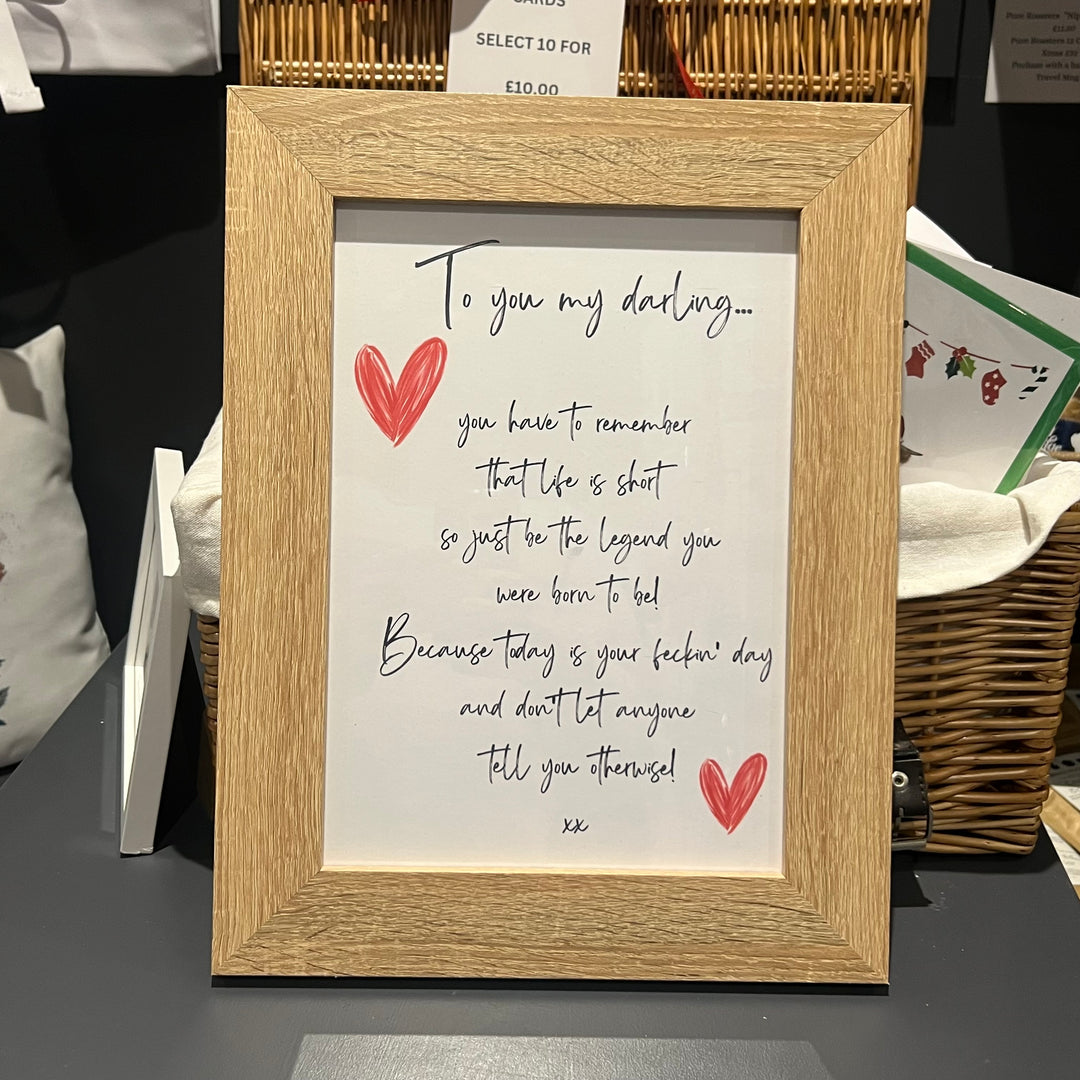 CARDS
SELECT 10 FOR
£10.00
Pure Roasters "Ni
£12.50
Pure Roasters 12
Xmas £70
Puchase with a ba
Travel Mug
To you my darling...
you have to remember
that life is short
so just be the legend you
were born to be!
Because today is your feckin' day
and don't let anyone
tell you otherwise!
xx